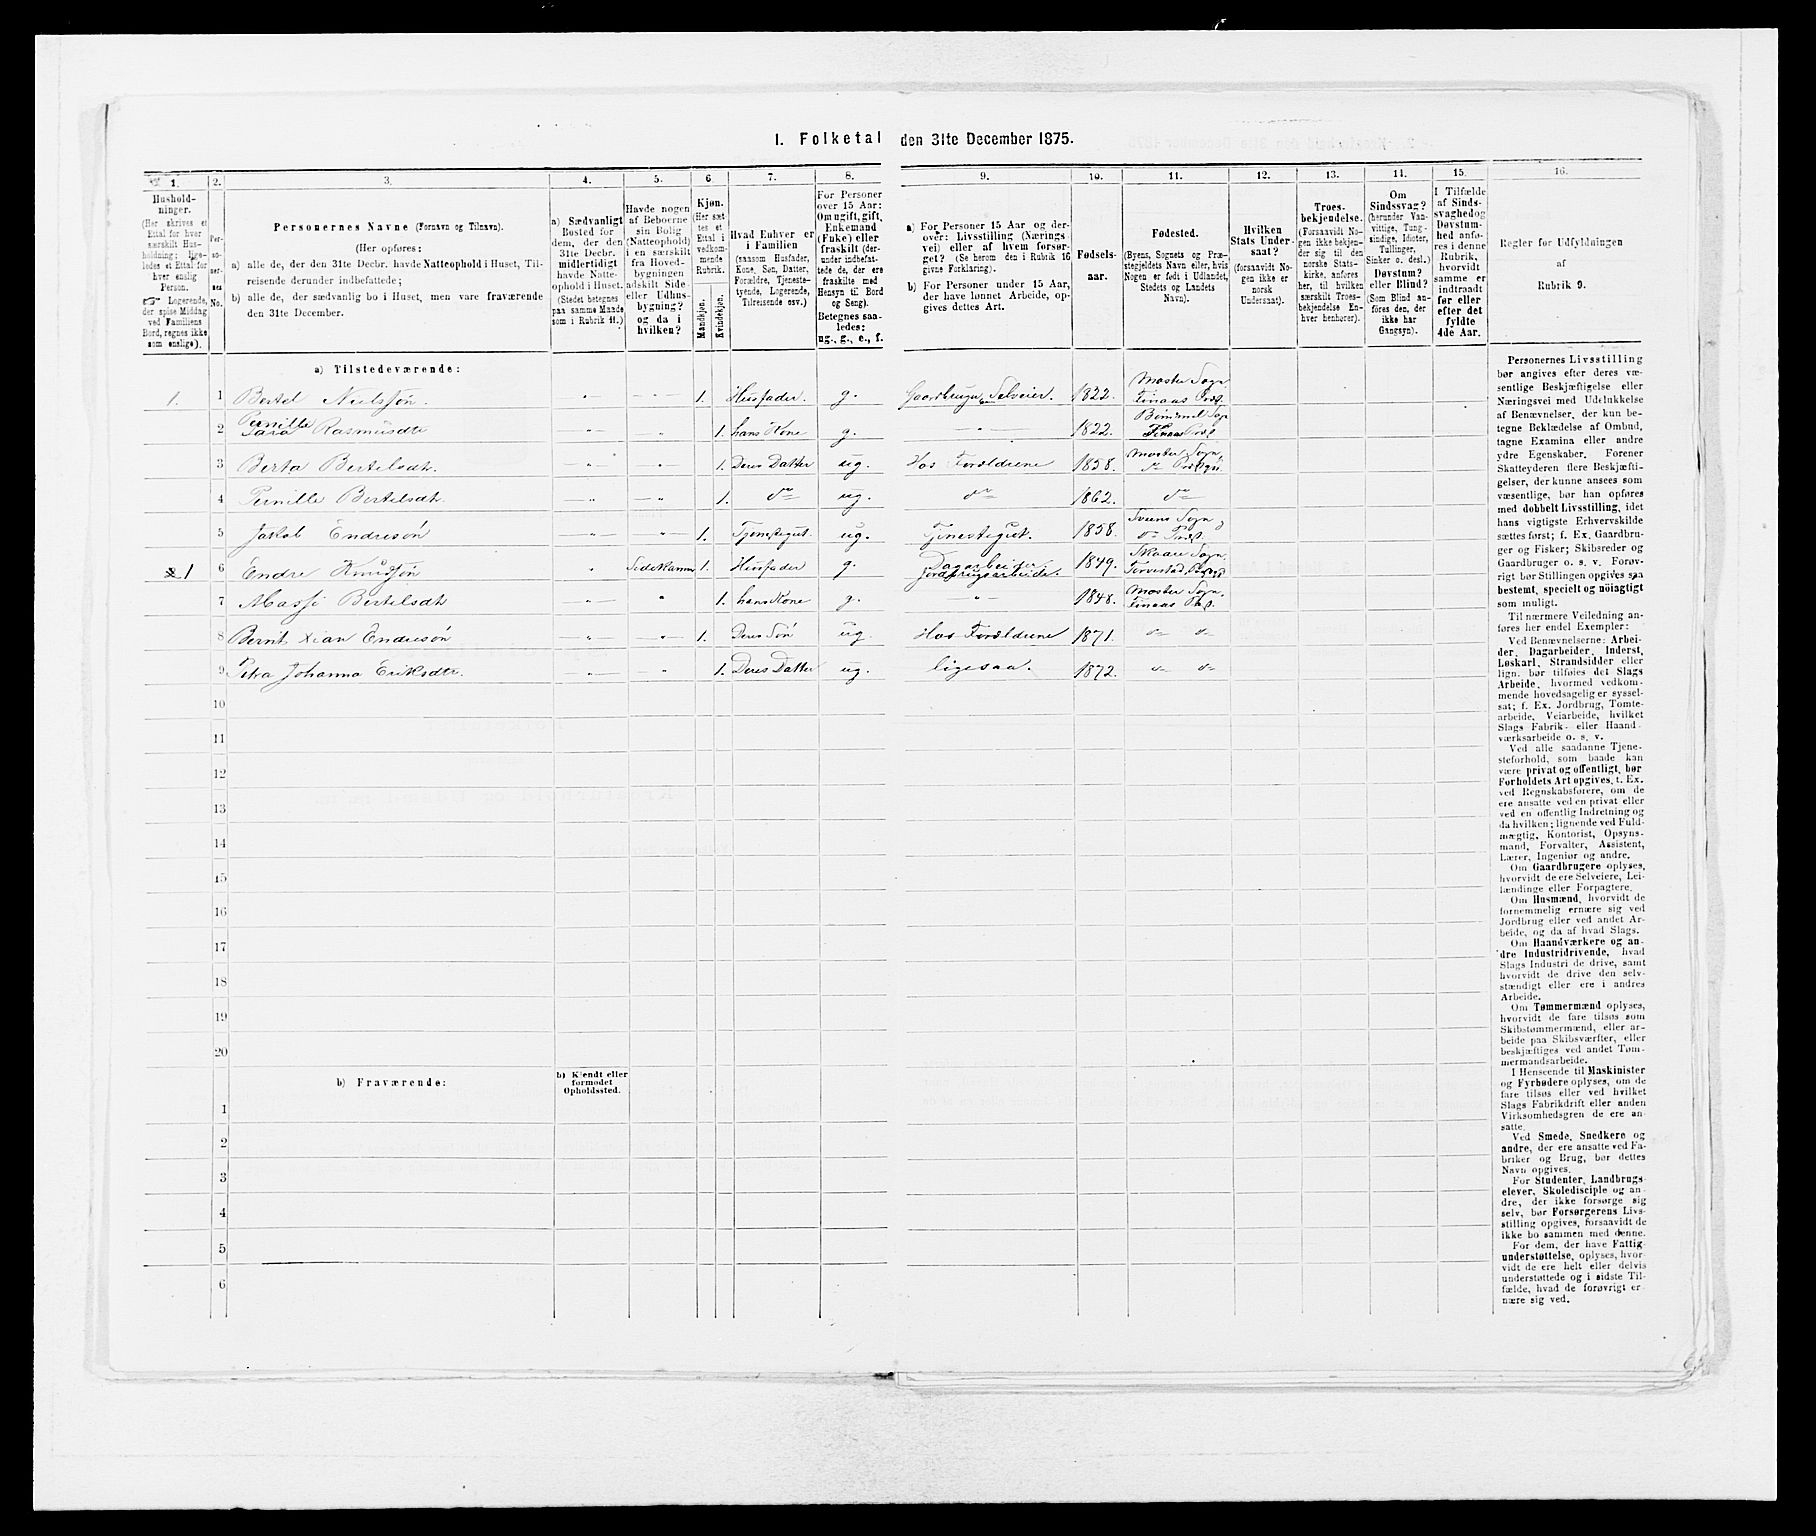 I. Folketal den 31te December 1875.
1. 2. 3. 4. 5. 6. 7. 8. 9. 10. 11. 12. 13. 14. 15. 16.
Hushold-
ninger.
(Her skrives et
Ettal for hver
særskilt Hus-
holdning; lige-
ledes et Ettal for
hver enslig
Person.
☞ Logerende,
der spise Middag
ved Familiens
Bord, regnes ikke
som enslige).
Per-
so-
ner-
nes
No.
Personernes Navne (Fornavn og Tilnavn).
(Her opføres:
a) alle de, der den 31te Decbr. havde Natteophold i Huset, Til-
reisende derunder indbefattede;
b) alle de, der sædvanlig bo i Huset, men vare fraværende
den 31te December.
a) Sædvanligt
Bosted for
dem, der den
31te Decbr.
midlertidigt
havde Natte-
ophold i Huset.
(Stedet betegnes
paa samme Maade
som i Rubrik 11.)
Havde nogen
af Beboerne
sin Bolig
(Natteophold)
i en særskilt
fra Hoved-
bygningen
adskilt Side-
eller Udhus-
bygning?
og da i
hvilken?
Kjøn.
(Her sæt-
tes et
Ettal i
vedkom-
mende
Rubrik.
Mandkjøn.
Kvindekjøn.
Hvad Enhver er
i Familien
(saasom Husfader,
Kone, Søn, Datter,
Forældre, Tjeneste-
tyende, Logerende,
Tilreisende osv.)
For Personer
over 15 Aar:
Om ugift, gift,
Enkemand
(Enke) eller
fraskilt (der-
under indbefat-
tede de, der ere
fraskilte med
Hensyn til Bord
og Seng).
Betegnes saa-
ledes:
ug., g., e., f.
a) For Personer 15 Aar og der-
over: Livsstilling (Nærings-
vei) eller af hvem forsør-
get? (Se herom den i Rubrik 16
givne Forklaring).
b) For Personer under 15 Aar,
der have lønnet Arbeide, op-
gives dettes Art.
Fødsels-
aar.
Fødested.
(Byens, Sognets og Præ-
stegjeldets Navn eller, hvis
Nogen er født i Udlandet,
Stedets og Landets
Navn).
Hvilken
Stats Under-
saat?
(forsaavidt No-
gen ikke er
norsk
Undersaat).
Troes-
bekjendelse.
(Forsaavidt No-
gen ikke bekjen-
der sig til den
norske Stats-
kirke, anføres
her, til hvilken
særskilt Troes-
bekjendelse En-
hver henhører).
Om
Sindssvag?
(herunder Van-
vittige, Tung-
sindige, Idioter,
Tullinger,
Sinker o. desl.)
Døvstum?
eller Blind?
(Som Blind an-
føres den, der
ikke har
Gangsyn).
I Tilfælde
af Sinds-
svaghed og
Døvstum-
hed anfø-
res i denne
Rubrik,
hvorvidt
samme er
indtraadt
før eller
efter det
fyldte
4de Aar.
Regler for Udfyldningen
af
Rubrik 9.
a) Tilstedeværende:
1. 1 Bertel Nielssøn. " " 1. Husfader. g. Gaardbruger Selveier. 1822. Moster Sogn Finaas Prst.
2 Pernille Sara Rasmusdtr " " 1. hans Kone g. " 1822. Bømmel Sogn Finaas Prst
3 Berta Bertelsdtr. " " 1. Deres Datter ug. Hos Forældrene 1858. Moster Sogn, do
4 Pernille Bertelsdtr. " " 1. do ug. do 1862. do
5 Jakob Endresøn " " 1. Tjenestegut. ug. Tjenestegut. 1858. Sveens Sogn do Prst.
2 1 6 Endre Knudsøn " Sidekammer 1. Husfader g. Dagarbeider. Jordbrugsarbeide. 1849. Skaare Sogn, Torvestad
7 Massi Bertelsdtr " " 1. hans Kone g. " 1848. Moster Sogn, Finaas Prst.
8 Bernt Endresøn " " 1. Deres Søn ug. Hos Forældrene 1871. do do
9 Petra Johanna Eriksdtr. " " 1. Deres Datter ug. ligesaa. 1872. do do
10
11
12
13
14
15
16
17
18
19
20
b) Fraværende:
b) Kjendt eller
formodet
Opholdssted.
1
2
3
4
5
6
Personernes Livsstilling
bør angives efter deres væ-
sentlige Beskjæftigelse eller
Næringsvei med Udelukkelse
af Benævnelser, der kun be-
tegne Beklædelse af Ombud,
tagne Examina eller andre
ydre Egenskaber. Forener
Skatteyderen flere Beskjæfti-
gelser, der kunne ansees som
væsentlige, bør han opføres
med dobbelt Livsstilling, idet
hans vigtigste Erhvervskilde
sættes først; f. Ex. Gaardbru-
ger og Fisker; Skibsreder og
Gaardbruger o. s. v. Forøv-
rigt bør Stillingen opgives saa
bestemt, specielt og nøiagtigt
som muligt.
Til nærmere Veiledning an-
føres her endel Exempler:
Ved Benævnelserne: Arbei-
der, Dagarbeider, Inderst,
Løskarl, Strandsidder eller
lign. bør tilføies det Slags
Arbeide, hvormed vedkom-
mende hovedsagelig er syssel-
sat; f. Ex. Jordbrug, Tomte-
arbeide, Veiarbeide, hvilket
Slags Fabrik- eller Haand-
værksarbeide o. s. v.
Ved alle saadanne Tjene-
steforhold, som baade kan
være privat og offentligt, bør
Forholdets Art opgives, t. Ex.
ved Regnskabsførere, om de
ere ansatte ved en privat eller
ved en offentlig Indretning og
da hvilken; lignende ved Fuld-
mægtig, Kontorist, Opsyns-
mand, Forvalter, Assistent,
Lærer, Ingeniør og andre.
Om Gaardbrugere oplyses,
hvorvidt de ere Selveiere, Lei-
lændinge eller Forpagtere.
Om Husmænd, hvorvidt de
fornemmelig ernære sig ved
Jordbrug eller ved andet Ar-
beide, og da af hvad Slags.
Om Haandværkere og an-
dre Industridrivende, hvad
Slags Industri de drive, samt
hvorvidt de drive den selv-
stændigt eller ere i andres
Arbeide.
Om Tømmermænd oplyses,
hvorvidt de fare tilsøs som
Skibstømmermænd, eller ar-
beide paa Skibsværfter, eller
beskjæftiges ved andet Tøm-
mermandsarbeide.
I Henseende til Maskinister
og Fyrbødere oplyses, om de
fare tilsøs eller ved hvilket
Slags Fabrikdrift eller anden
Virksomhedsgren de ere an-
satte.
Ved Smede, Snedkere og
andre, der ere ansatte ved Fa-
briker og Brug, bør dettes
Navn opgives.
For Studenter, Landbrugs-
elever, Skoledisciple og an-
dre, der ikke forsørge sig
selv, bør Forsørgerens Livs-
stilling opgives, forsaavidt de
ikke bo sammen med denne.
For dem, der have Fattig-
understøttelse, oplyses, hvor-
vidt de ere helt eller delvis
understøttede og i sidste Til-
fælde, hvad de forøvrigt er-
nære sig ved.